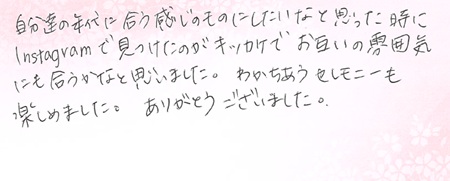 自分達の年代に合う感じのものにしたいなと思った時に
Instagramで見つけたのがキッカケで お互いの雰囲気
にも合うかなと思いました。 わかちあうセレモニーも
楽しめました。 ありがとうございました。